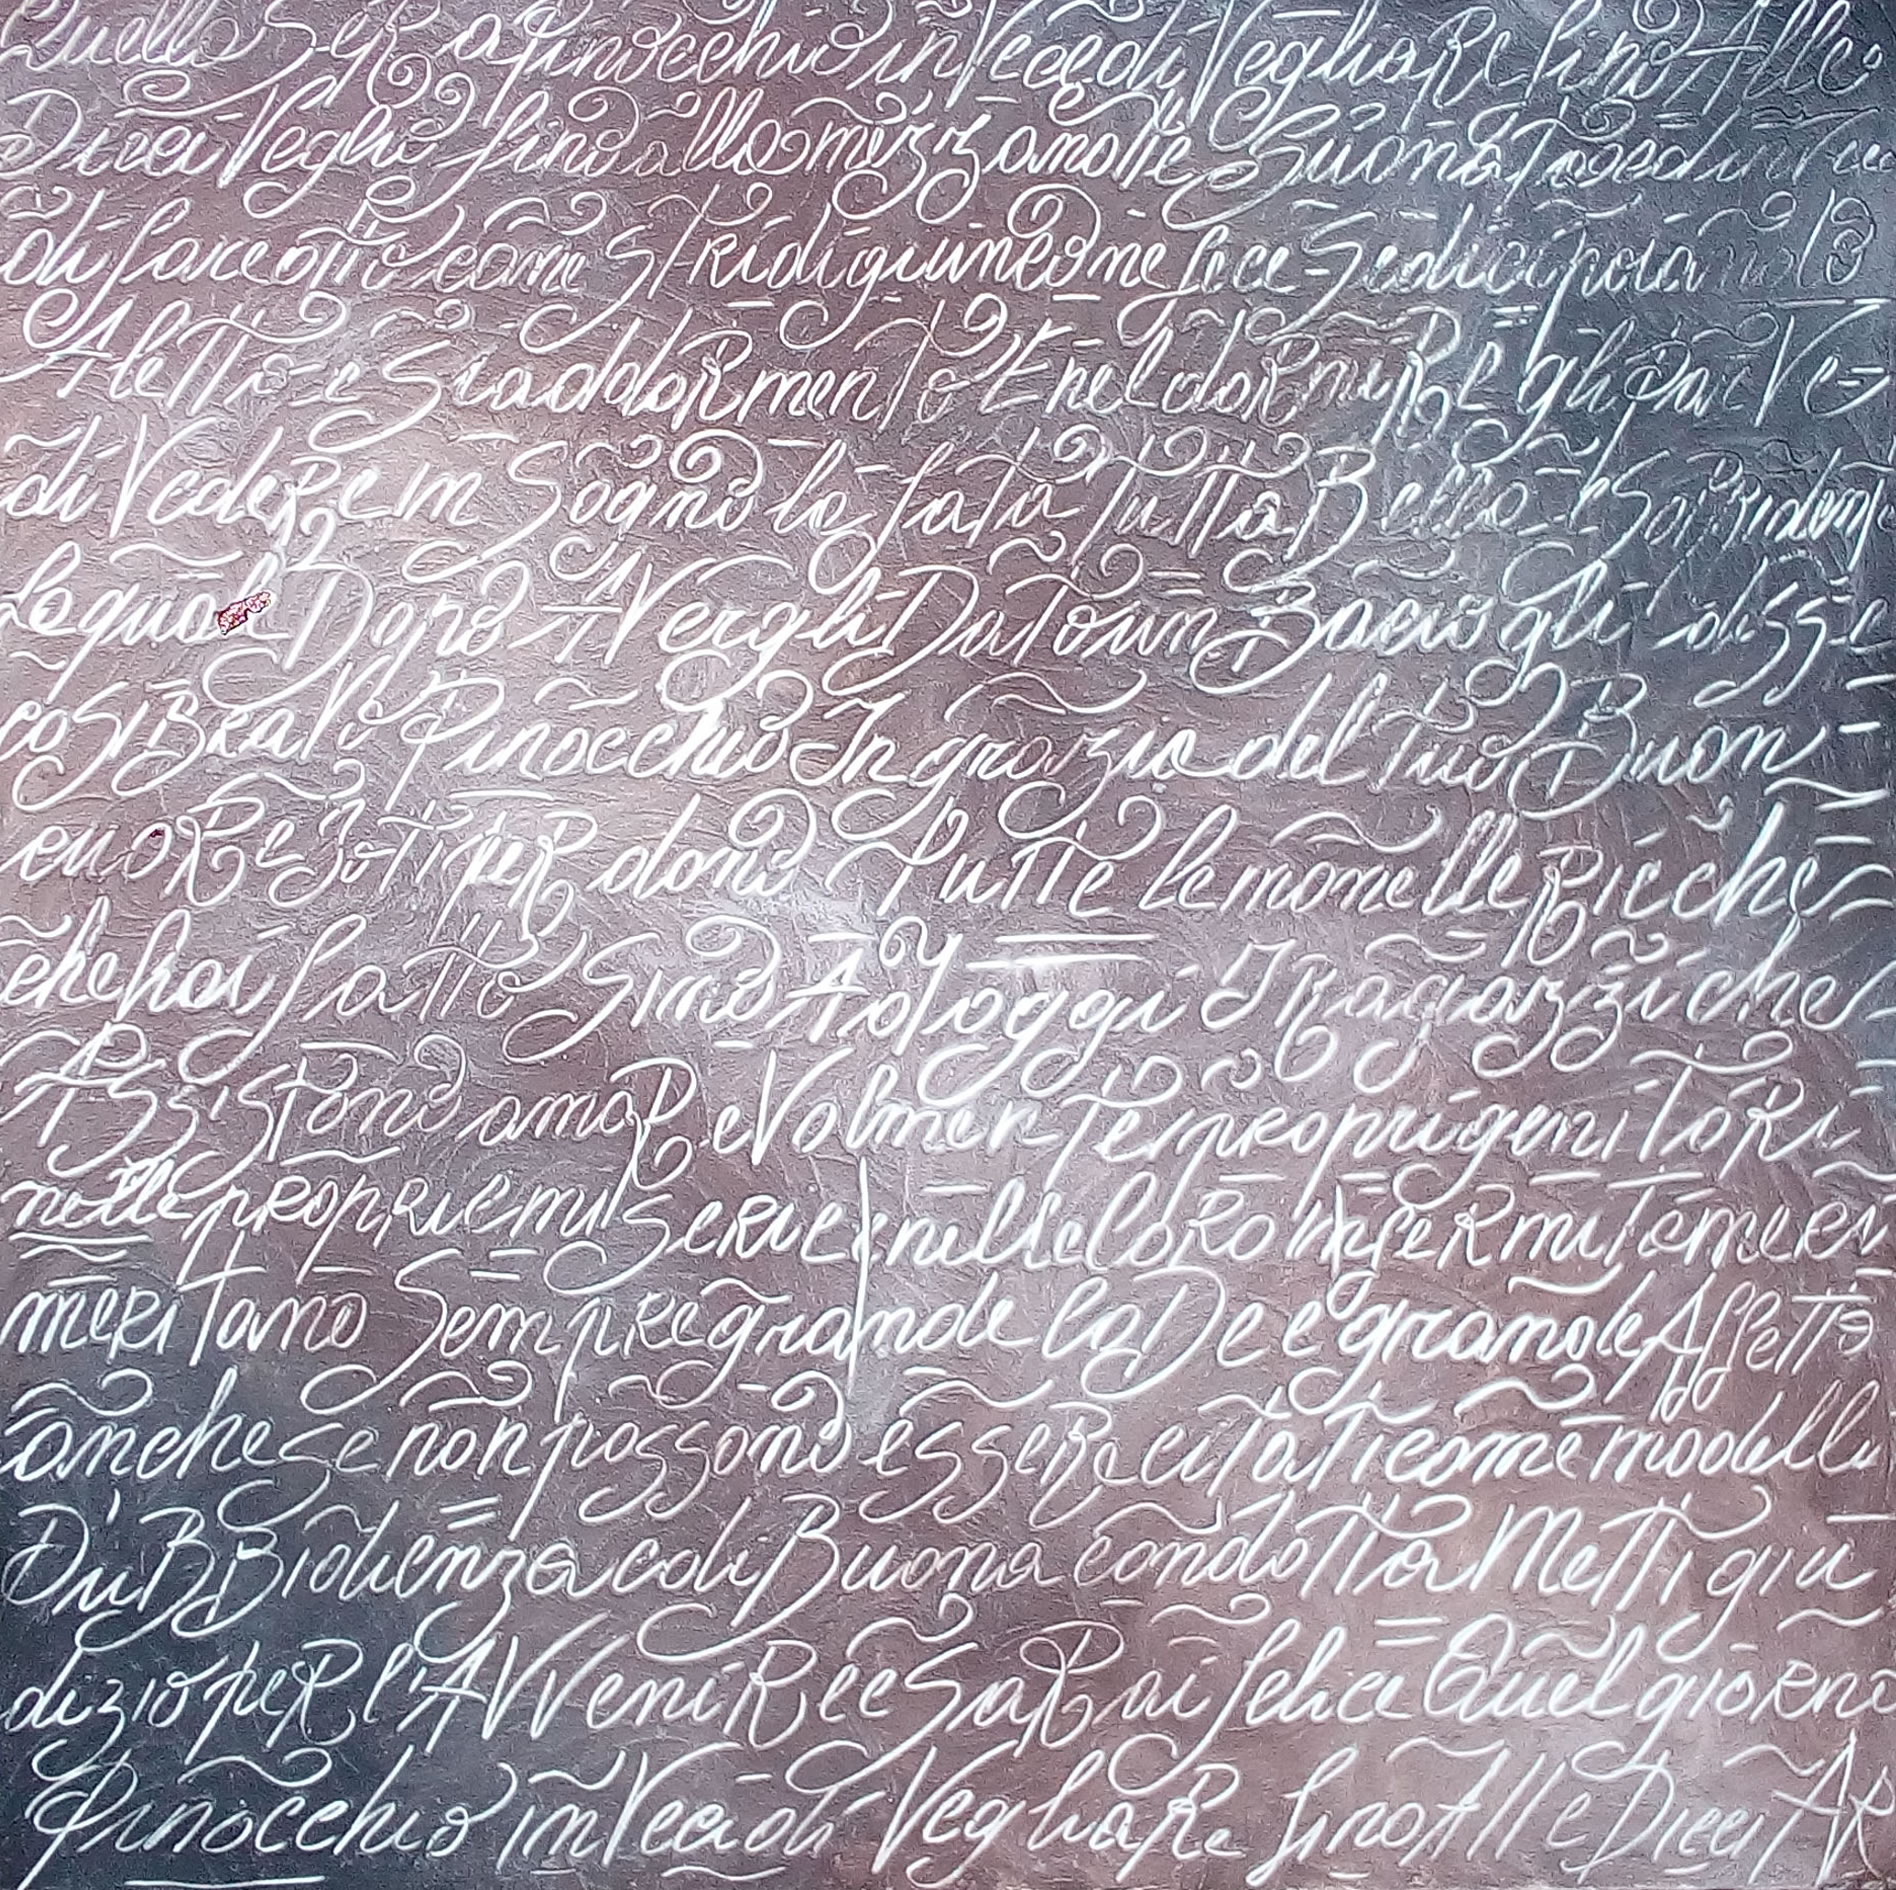 Quella Sera Pinocchio inVece di Vegliare fino Alle
Dieci Vegliò fino alla mezzanotte Suonata ed inVece
di fare otto canestri di giunco ne fece Sedici poi andò
A letto e Si addormentò E nel dormire gli parVe
di Vedere in Sogno la fata Tutta Bella e Sorridente
la quale Dopo AVergli Dato un Bacio gli disse
coSì BraVo Pinocchio In grazia del Tuo Buon
cuore Io Ti perdono Tutte le monellerie che
che hai fatto Sino Ad oggi I Ragazzi che
ASSiStono amoreVolmente i propri genitori
nelle proprie miSerie e nelle loro infermità meri
meritano Sempre gran de loDe e grande Affetto
anche Se non possono essere citati come modelli
D'uBBidienza e di Buona condotta Metti giu
dizio per l'AVVenire e SaRai felice Quel giorno
Pinocchio inVece di Vegliare fino Alle Dieci